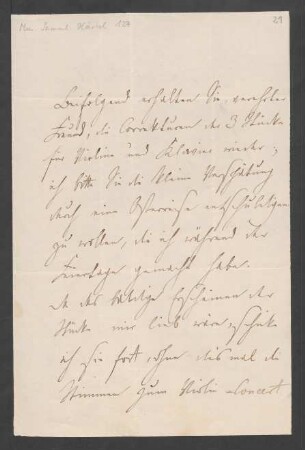 29
Beifolgend erhalten Sie, verehrter
Freund, die Correkturen der 3 Stücke
für Violine und Klavier wieder;
ich bitte Sie die kleine Verspätung
durch eine Osterreise entschuldigen
zu wollen, die ich während der
Feiertage gemacht habe.
Da das baldige Erscheinen der
Stücke mir lieb wäre, schicke
ich sie fort, ohne dies mal die
Stimmen zum Violin-Concert